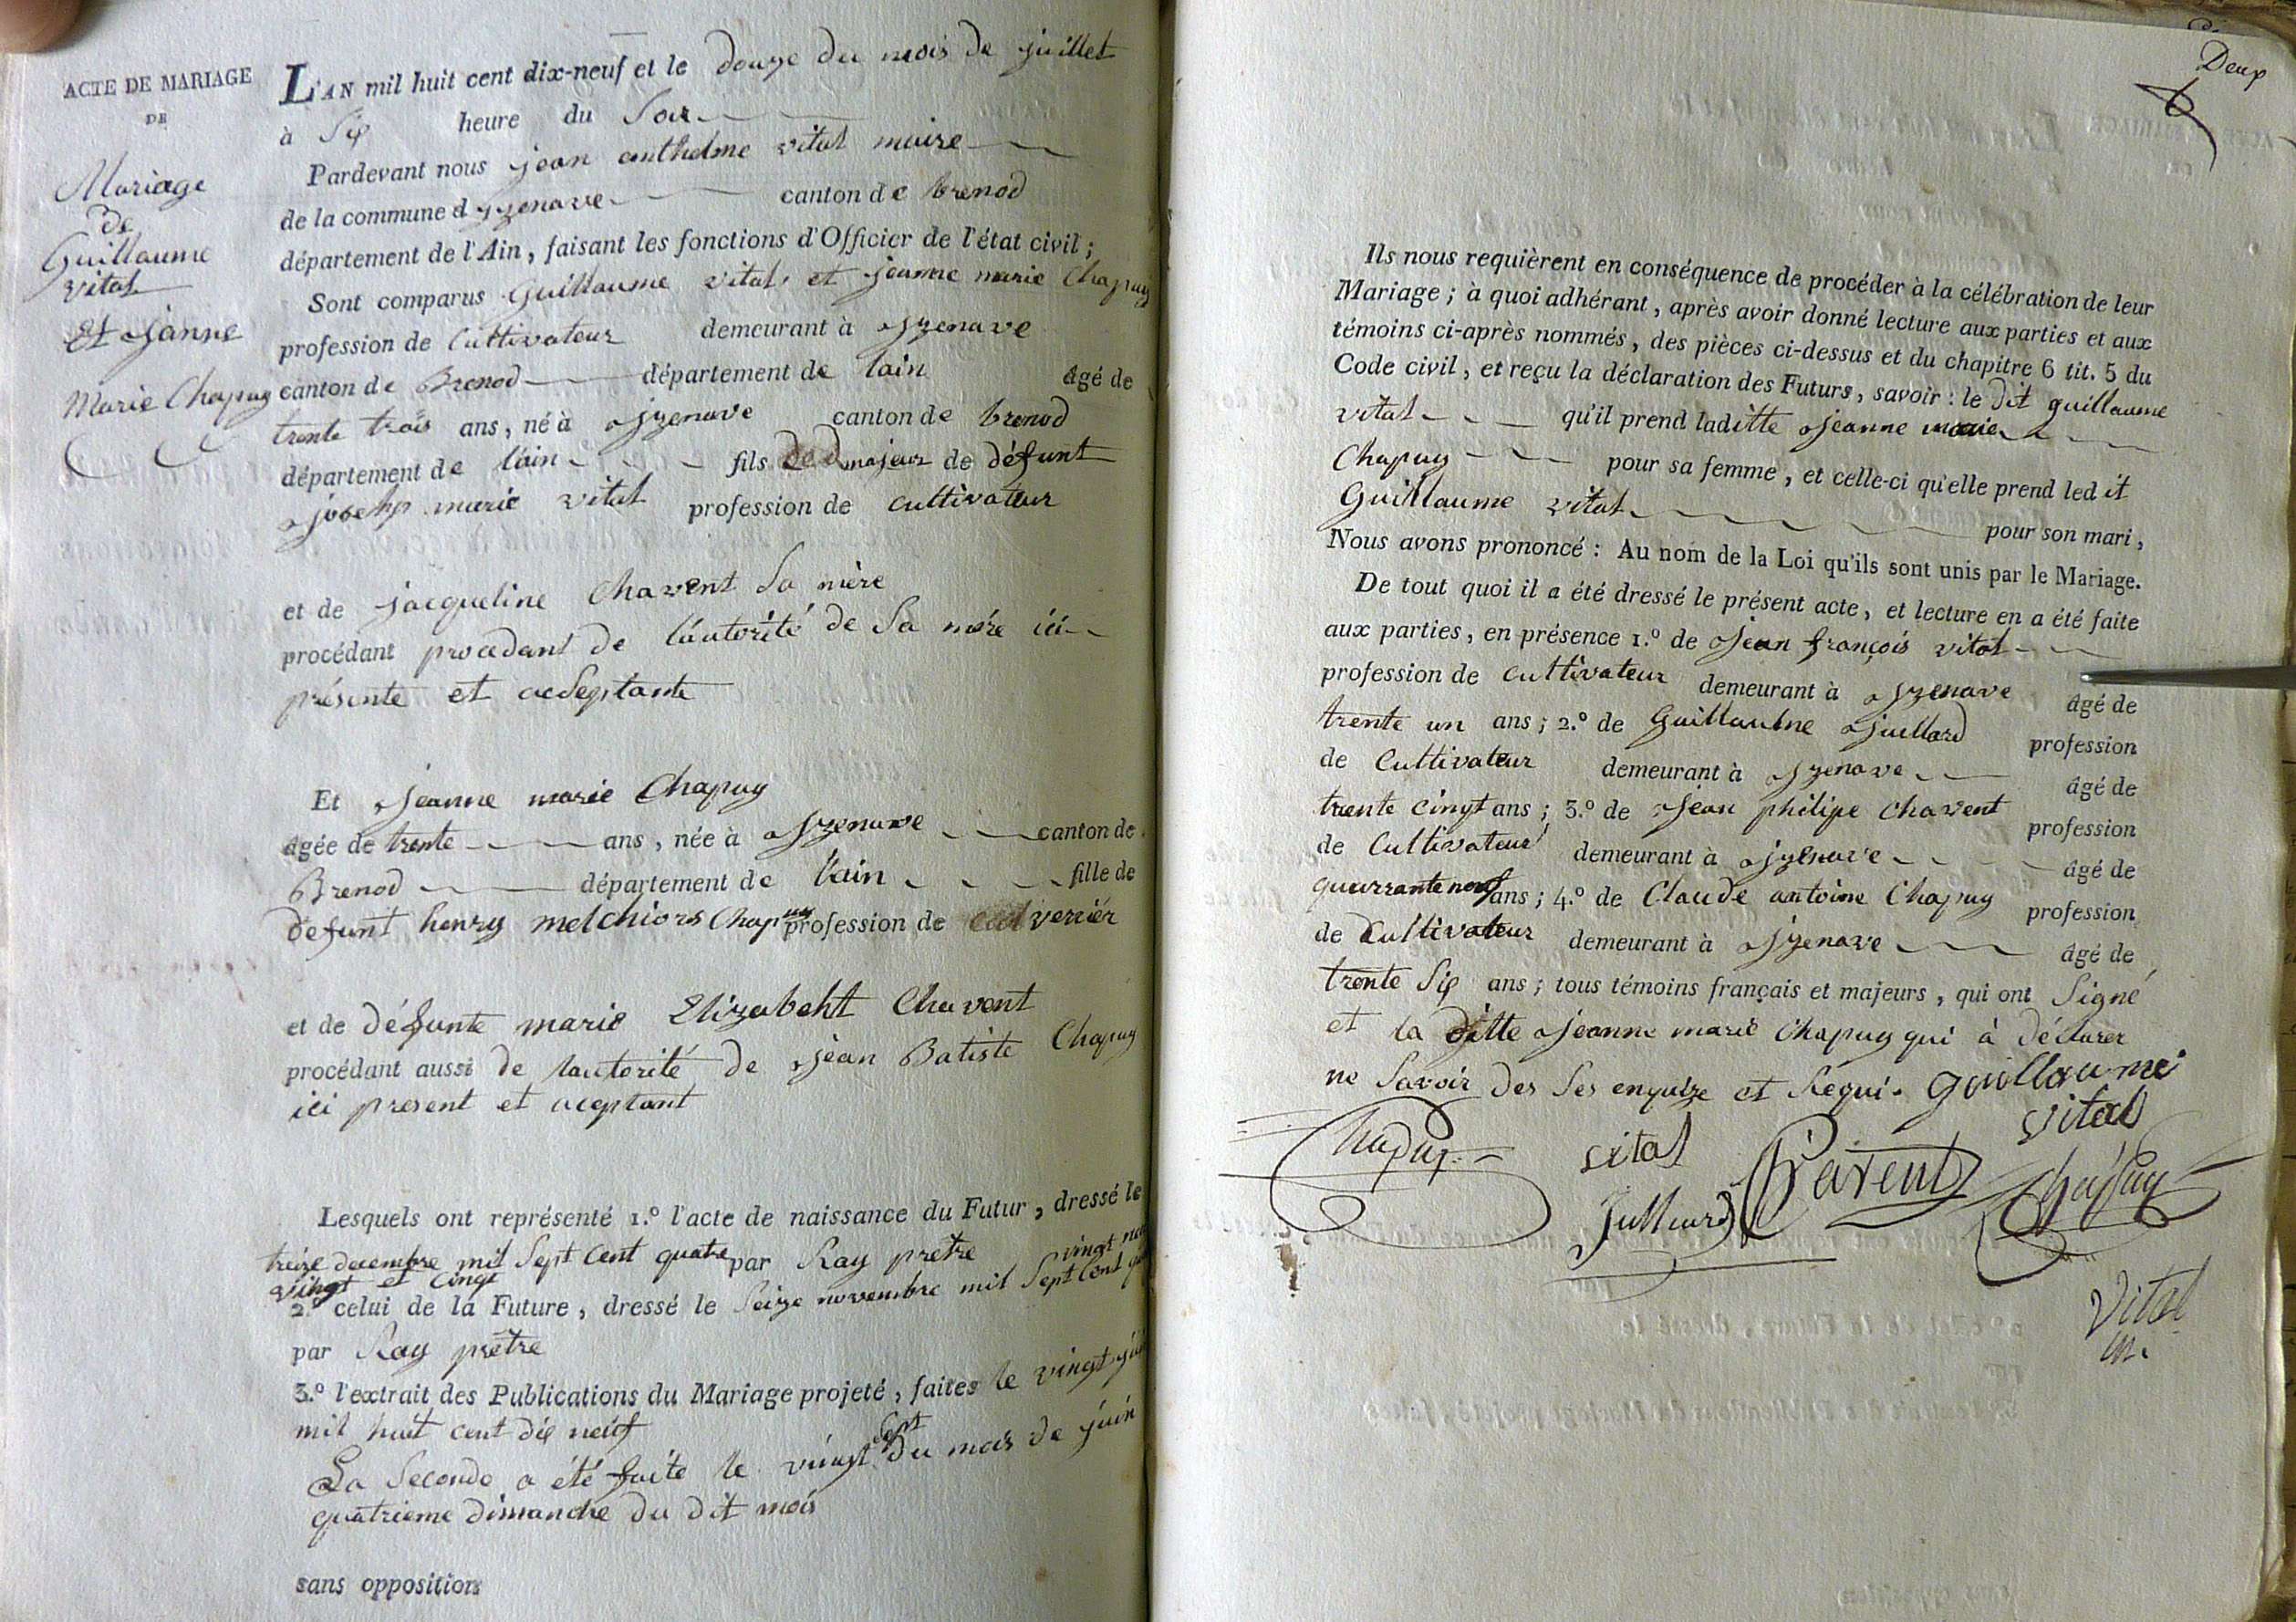 ACTE DE MARIAGE
DE
Mariage
de
Guillaume
vital
Et Janne
Marie Chapuy
L'AN mil huit cent dix-neuf et le douze du mois de juillet
à Six heure du Soir
Pardevant nous jean anthelme vital maire
de la commune d yzenave canton de brenod
département de l'Ain, faisant les fonctions d'Officier de l'état civil;
Sont comparus Guillaume vital et jeanne marie Chapuy
profession de Cultivateur demeurant à Izenave
canton de Brenod département de lain âgé de
trente trois ans, né à Izenave canton de brenod
département de l'ain fils majeur de défunt
josehp marie vital profession de cultivateur
et de jacqueline Chavent Sa mère
procédant procedant de l'autorité de Sa mère ici
présente et acSeptante
Et Jeanne marie Chapuy
âgée de trente ans, née à Izenave canton de
Brenod département de l'ain fille de
defunt henry melchiors Chapuy profession de verrier
et de défunte marie Elizabeht Chavent
procédant aussi de lautorité de jean Batiste Chapuy
ici present et aceptant
Lesquels ont représenté 1.º l'acte de naissance du Futur, dressé le
treize decembre mil Sept Cent quatre par Ray prêtre
vingt et cinq vingt
2.º celui de la Future, dressé le Seize novembre mil Sept Cent
par Ray prêtre
3.º l'extrait des Publications du Mariage projeté, faites le vingt
mil huit cent dix neuf
La Seconde a été faite le vingt Sept du mois de juin
quatrieme dimanche du dit mois
sans opposition
Deux
Ils nous requièrent en conséquence de procéder à la célébration de leur
Mariage; à quoi adhérant, après avoir donné lecture aux parties et aux
témoins ci-après nommés, des pièces ci-dessus et du chapitre 6 tit. 5 du
Code civil, et reçu la déclaration des Futurs, savoir: le dit guillaume
vital qu'il prend laditte Jeanne marie
Chapuy pour sa femme, et celle-ci qu'elle prend ledit
Guillaume vital pour son mari,
Nous avons prononcé: Au nom de la Loi qu'ils sont unis par le Mariage.
De tout quoi il a été dressé le présent acte, et lecture en a été faite
aux parties, en présence 1.º de Jean françois vital
profession de Cultivateur demeurant à Izenave âgé de
trente un ans; 2.º de Guillaulne Juillard profession
de Cultivateur demeurant à Izenave âgé de
trente cinqt ans; 3.º de Jean philipe Chavent profession
de Cultivateur demeurant à Izenave âgé de
quarrante neuf ans; 4.º de Claude antoine Chapuy profession
de Cultivateur demeurant à Izenave âgé de
trente Six ans; tous témoins français et majeurs, qui ont Signé
et la ditte Jeanne marie Chapuy qui à déclarer
ne Savoir des Ses enquize et Requi. Guillaume
vital
Chapuy vital Chavent Chapuy
Julliard
Vital
m.